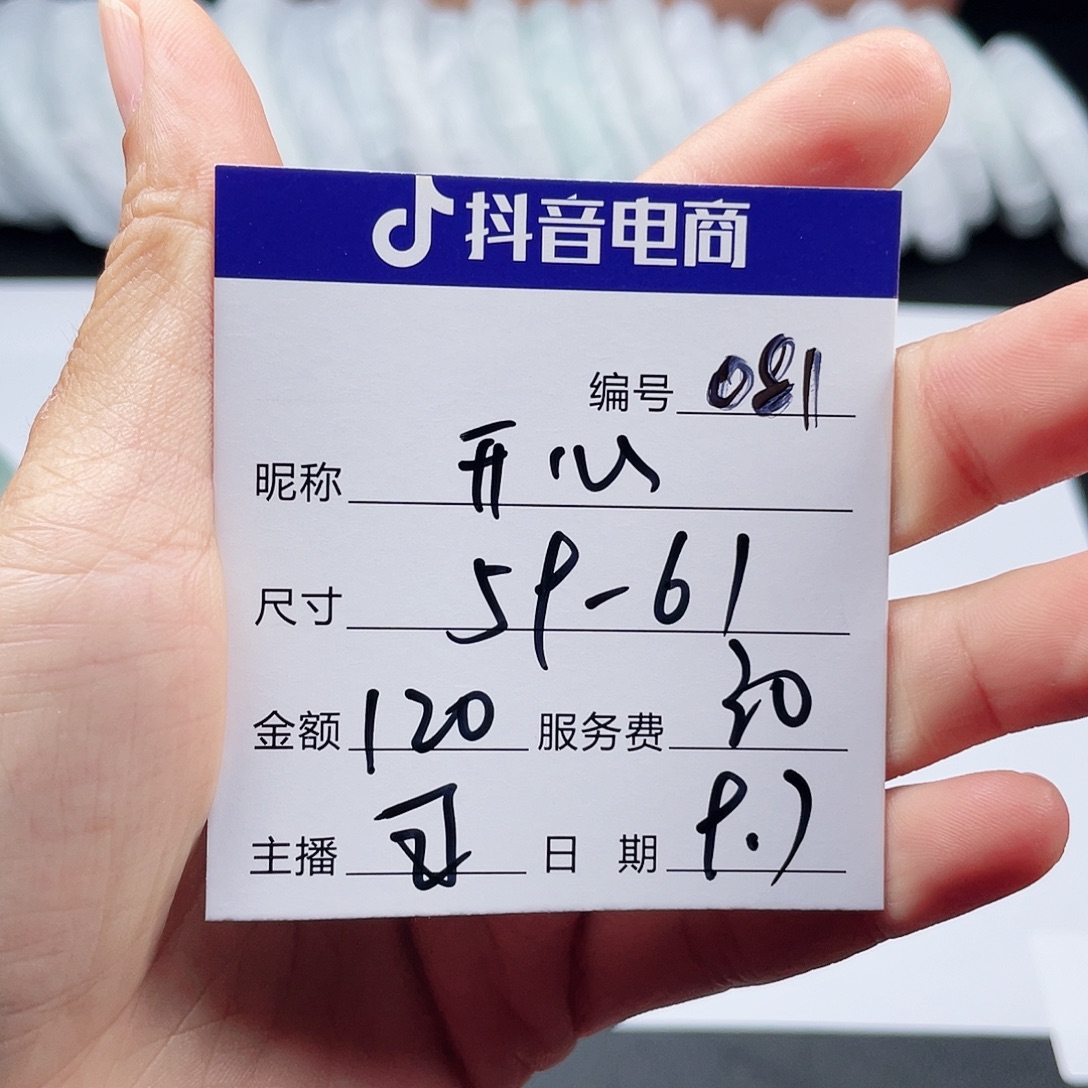 抖音电商
编号 081
昵称 开心
尺寸 59-61
金额 120 服务费 30
主播 日期 9.7